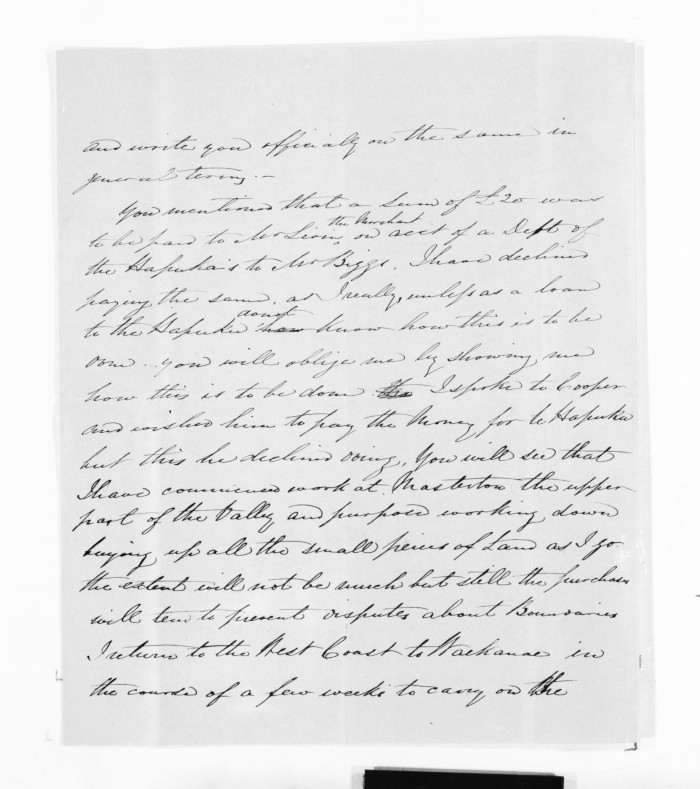 and write you officially on the same in
general terms. —
You mentioned that a Sum of £20 was
to be paid to Mr Lion the Merchant on acct of a Debt of
the Hapuka's to Mr Biggs. I have declined
paying the same, as I really, unless as a loan
to the Hapuku donot how know how this is to be
done .. you will oblige me by showing me
how this is to be done the I spoke to Cooper
and wished him to pay the Money for te Hapuku
but this he declined doing, You will see that
I have commenced work at Masterton the upper
part of the Valley and purpose working down
buying up all the small pieces of Land as I go
the extent will not be much but still the purchases
will tend to prevent disputes about Boundaries
I return to the West Coast to Waekanae in
the course of a few weeks to carry on the